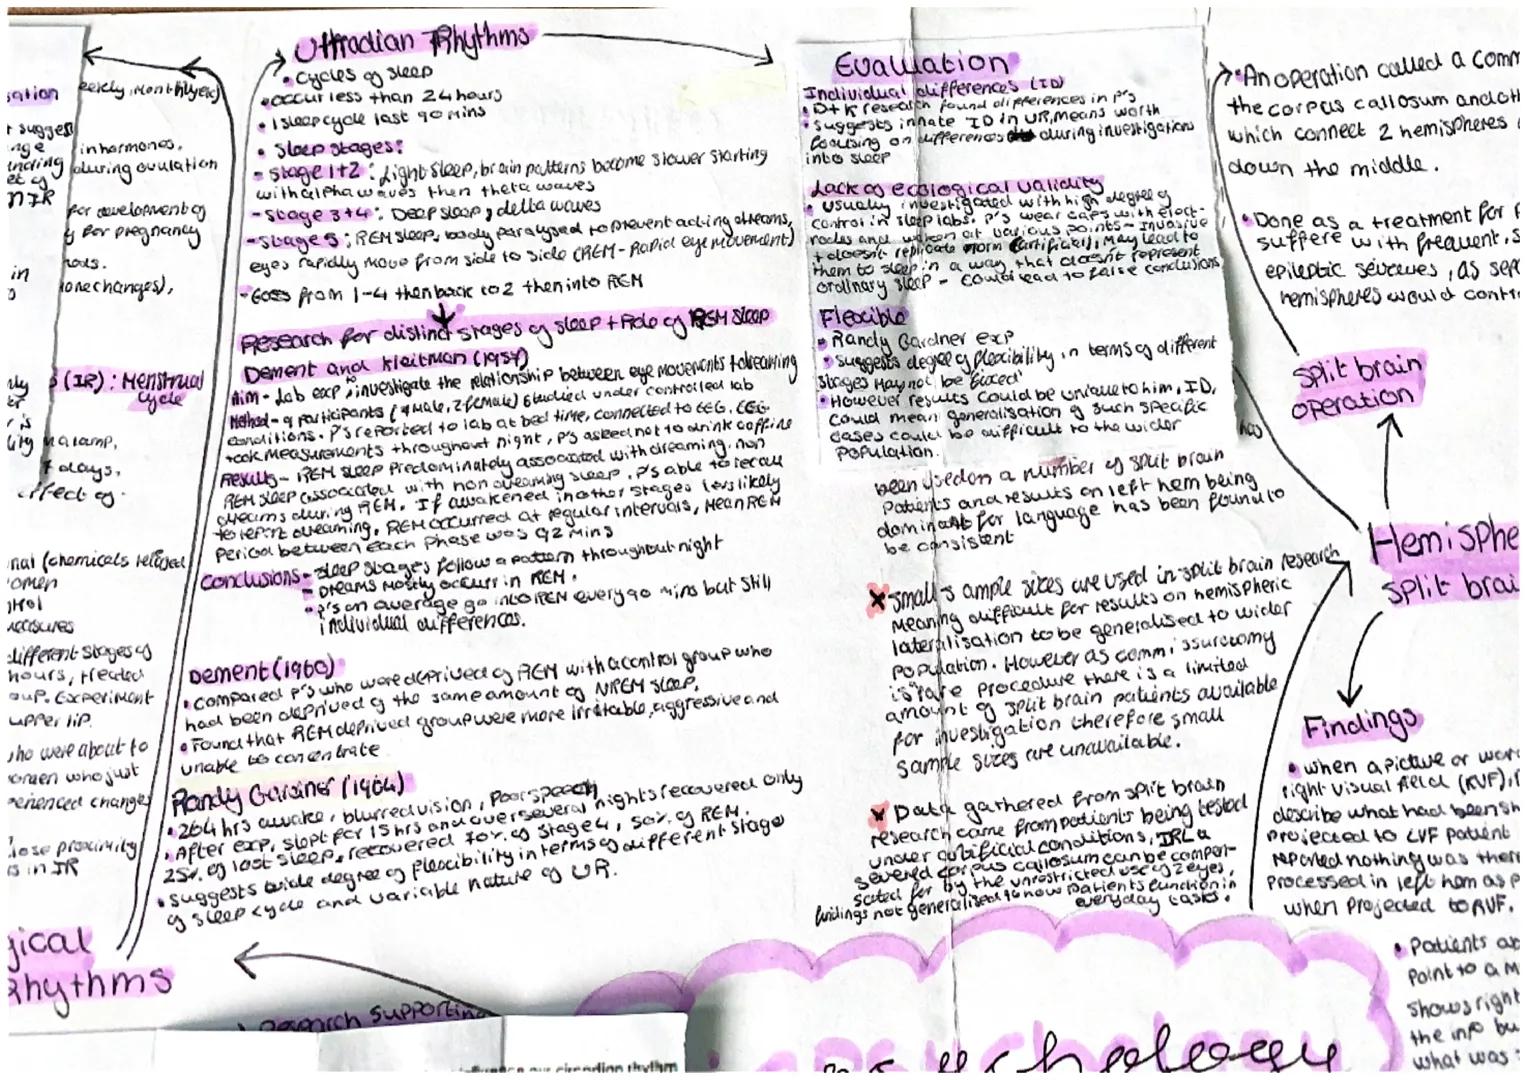 Ultradian Rhythms
• Cycles of sleep
• occur less than 24 hours
• 1 sleep cycle last 90 mins
• Sleep stages:
- Stage 1+2 : Light sleep, brain patterns become slower starting
with alpha waves then theta waves
- Stage 3+4 : Deep sleep, delta waves
- Stage 5 : REM sleep, body paralysed to prevent acting dreams,
eyes rapidly move from side to side (REM - Rapid eye movement)
- Goes from 1-4 then back to 2 then into REM
Research for distinct stages of sleep + Role of REM sleep
Dement and Kleitman (1957)
Aim - Lab exp, investigate the relationship between eye movements + dreaming
Method - 9 participants (7 male, 2 female) studied under controlled lab
conditions. P's reported to lab at bed time, connected to EEG. EEG
took measurements throughout night, P's asked not to drink caffine
Results - REM sleep predominately associated with dreaming, non
REM sleep associated with non dreaming sleep. P's able to recall
dreams during REM. If awakened in other stages less likely
to report dreaming. REM occurred at regular intervals, Mean REM
Period between each phase was 92 mins
Conclusions - Sleep stages follow a pattern throughout night
- Dreams mostly occurr in REM.
• P's on average go into REM every 90 mins but still
individual differences.
Dement (1960)
• compared P's who were deprived of REM with a control group who
had been deprived of the same amount of NREM sleep.
• Found that REM deprived group were more irritable, aggressive and
unable to concentrate
Randy Gardner (1964)
• 264 hrs awake, blurred vision, poor speech
• After exp, slept for 15 hrs and over several nights recovered only
25% of lost sleep, recovered 70% of stage 4, 50% of REM.
• suggests wide degree of flexibility in terms of different stage
of sleep cycle and variable nature of UR.
Evaluation
Individual differences (ID)
• D+K research found differences in P's
• Suggests innate ID in UR, means worth
focusing on differences during investigations
into sleep
Lack of ecological validity
• Usually investigated with high degree of
control in sleep labs. P's wear caps with elect-
rodes and woken at various points - Invasive
+ doesn't replicate norm (artificial), May lead to
them to sleep in a way that doesn't represent
ordinary sleep - could lead to false conclusions
Flexible
• Randy Gardner exp
• suggests degree of flexibility in terms of different
stages may not be 'fixed'
• However results could be unique to him, ID,
could mean generalisation of such specific
cases could be difficult to the wider
population.
has
been used on a number of split brain
Patients and results on left hem being
dominant for language has been found to
be consistent
x small sample sizes are used in split brain research
Meaning difficult for results on hemispheric
lateralisation to be generalised to wider
population. However as commissurotomy
is rare procedure there is a limited
amount of split brain patients available
for investigation therefore small
sample sizes are unavailable.
x Data gathered from split brain
research came from patients being tested
under artificial conditions, IRL a
severed corpus callosum can be compen-
sated for by the unrestricted use of 2 eyes,
findings not generalised to how patients function in
everyday tasks.
• An operation called a comm
the corpus callosum and oth
which connect 2 hemispheres
down the middle.
• Done as a treatment for P
suffere with frequent, s
epileptic seizures, as sep
hemispheres would contr
Split brain
operation
Hemisphe
split brai
Findings
• when a picture or wor
right visual field (RVF),
describe what had been sh
projected to LVF patient
reported nothing was ther
processed in left hem as p
when projected to RVF.
• Patients ab
point to a m
shows right
the info bu
what was
sation
weekly, monthly etc)
t sugges
in hormones,
during ovulation
for development of
y for pregnancy
in
mone changes),
(IR) : Menstrual
cycle
lamp,
days,
effect of
nal (chemicals released
women
measures
different stages of
hours, treated
oup. Experiment
upper lip.
who were about to
women who just
perienced changes
lose proximity
s in IR
gical
Rhythms
Research supporting
our circadian rhythm
sychology